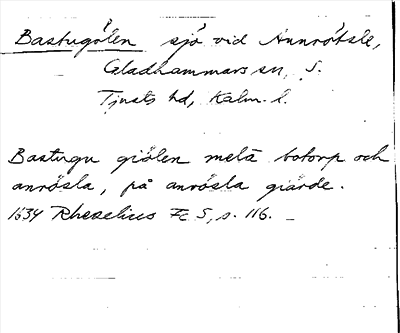 Bastugölen sjö vid Annrötsle,
Gladhammars sn, S.
Tjusts hd, Kalm. l.
Bastugu giölen melä botorp och
anrösla, på anrösla giärde.
1634 Rhezelius Fc 5, s. 116. –